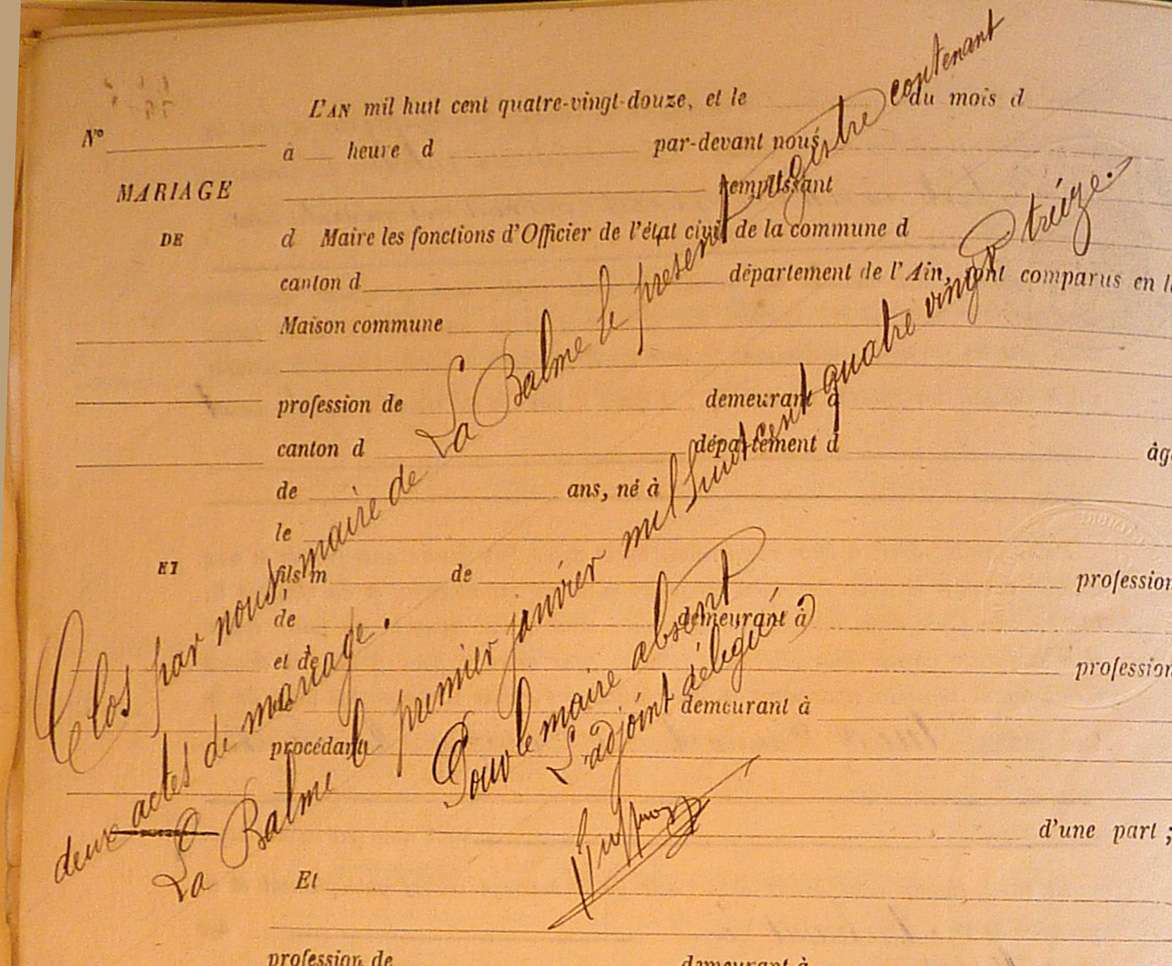 L'AN mil huit cent quatre-vingt-douze, et le du mois d
N°
à heure d par-devant nous
MARIAGE
remplissant
DE
d Maire les fonctions d'Officier de l'état civil de la commune d
canton d département de l'Ain, ont comparus en l
Maison commune
profession de demeurant à
canton d département d âg
de ans, né à
le
ET
fils m de profession
de demeurant à
et de profession
demeurant à
procédant
d'une part ;
Et
profession de demeurant à
Clos par nous, maire de La Balme le présent registre contenant
deux actes de mariage.
La Balme le premier janvier mil huit cent quatre vingt treize.
Pour le maire absent
L'adjoint délégué